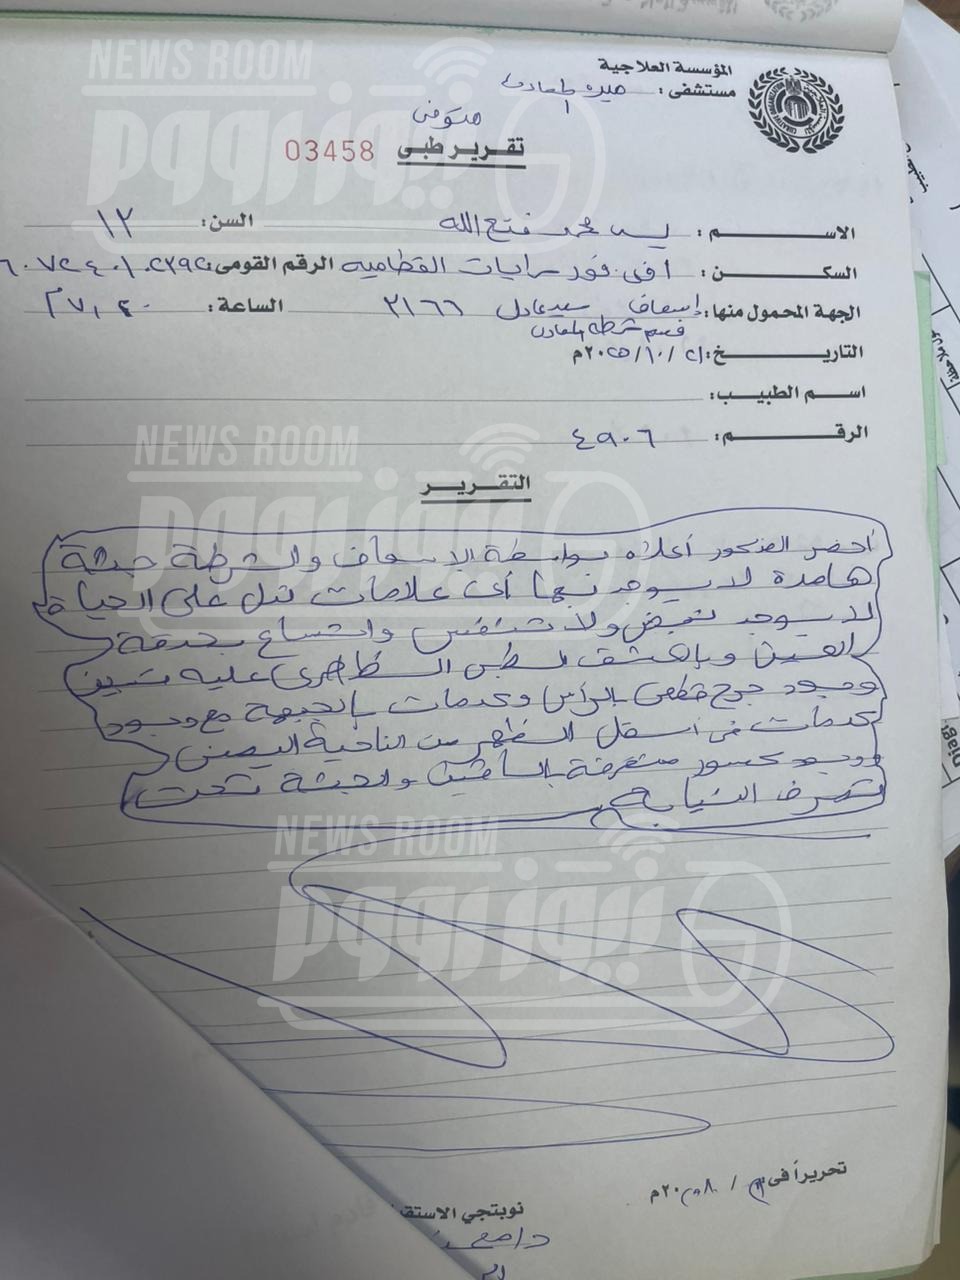 NEWS ROOM
نيوزرووم
المؤسسة العلاجية
مستشفى: هبة المعادى
متوفى
تقرير طبى 03458
الاســـم: محمد فتح الله السن: ١٢
السكن: سرايات القطامية الرقم القومى:
الجهة المحمول منها: إسعاف سيد عادل ٢١٦٦ الساعة:
قسم شرطة المعادى
التاريـــخ: ٢١ / ١٠ / ٢٠٢٥م
اسم الطبيب:
الرقـــم: ٤٩٠٦
NEWS ROOM
نيوزرووم
التقريـــر
أحضر المذكور أعلاه بواسطة الإسعاف والشرطة جثة
هامدة لا يوجد بها أى علامات تدل على الحياة
لا يوجد نبض ولا تنفس واتساع بحدقة
العين وبالكشف الطبى الظاهرى عليه تبين
وجود جرح قطعى بالرأس وكدمات بالجبهة مع وجود
كدمات فى أسفل الظهر من الناحية اليمنى
ووجود كسور متفرقة بالساقين والجثة تحت
تصرف النيابة
NEWS ROOM
نيوزرووم
تحريراً فى / / ٢٠م
نوبتجي الاستق